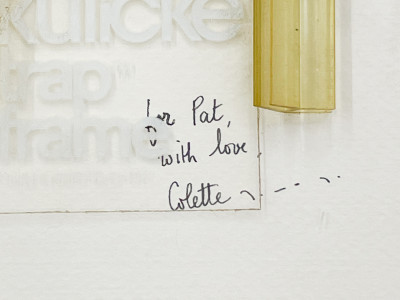 kulicke
trap
frame
for Pat,
with love
Colette